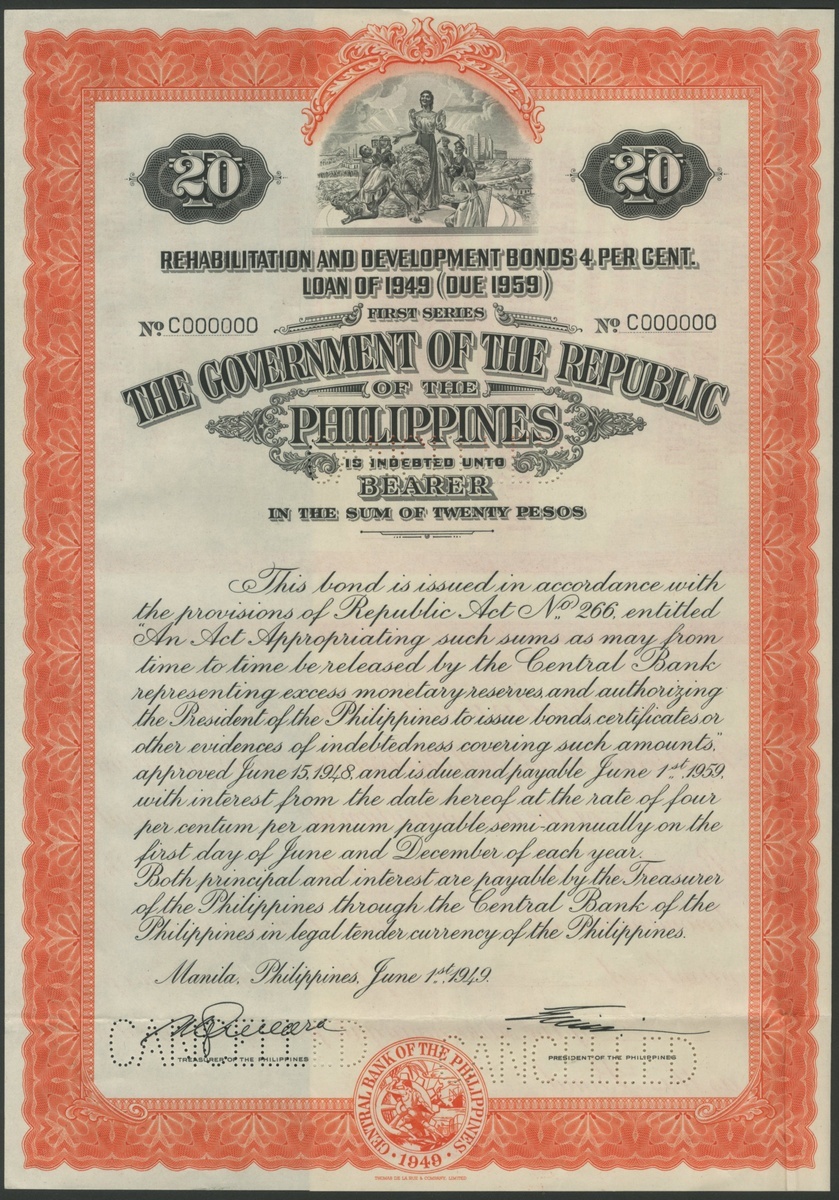 20 20
REHABILITATION AND DEVELOPMENT BONDS 4 PER CENT.
LOAN OF 1949 (DUE 1959)
FIRST SERIES
No. C000000 No. C000000
THE GOVERNMENT OF THE REPUBLIC
OF THE
PHILIPPINES
IS INDEBTED UNTO
BEARER
IN THE SUM OF TWENTY PESOS
This bond is issued in accordance with
the provisions of Republic Act No. 266, entitled
"An Act Appropriating such sums as may from
time to time be released by the Central Bank
representing excess monetary reserves, and authorizing
the President of the Philippines to issue bonds, certificates or
other evidences of indebtedness covering such amounts,"
approved June 15, 1948, and is due and payable June 1st, 1959,
with interest from the date hereof at the rate of four
per centum per annum payable semi-annually on the
first day of June and December of each year.
Both principal and interest are payable by the Treasurer
of the Philippines through the Central Bank of the
Philippines in legal tender currency of the Philippines.
Manila, Philippines, June 1st, 1949.
CANCELLED CANCELLED
TREASURER OF THE PHILIPPINES PRESIDENT OF THE PHILIPPINES
CENTRAL BANK OF THE PHILIPPINES
· 1949 ·
THOMAS DE LA RUE & COMPANY, LIMITED